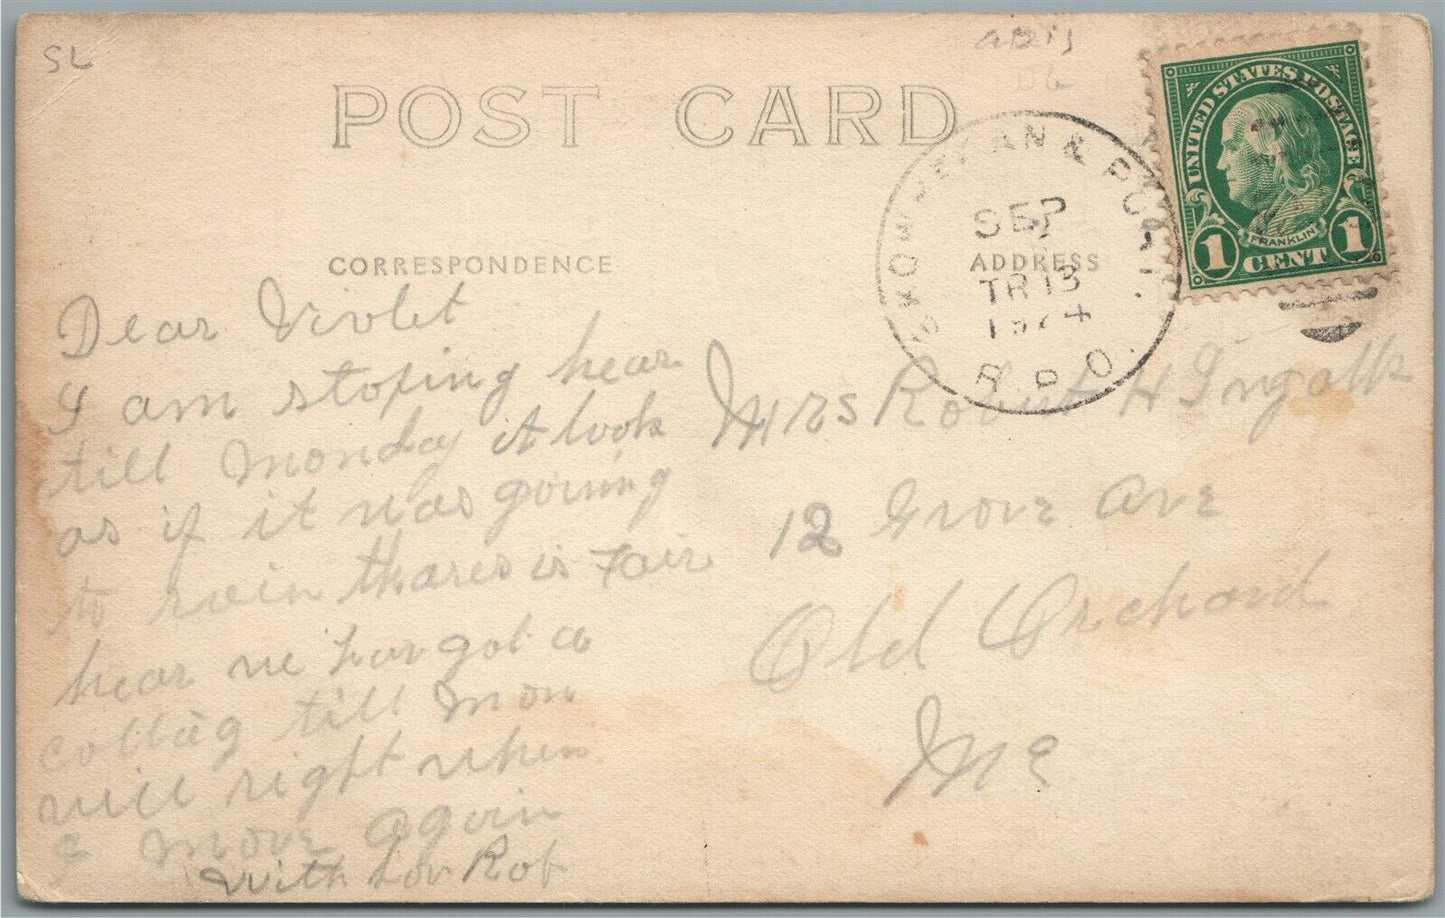 SL
POST CARD
CORRESPONDENCE
Dear Violet
I am stoping hear
till Monday it look
as if it was goining
to rain thares is Fair
hear we hav got a
cotteg till mon
will right when
I move again
With Lov Rob
SKOWHEGAN & PORT.
SEP
ADDRESS
TR 13
1924
R.P.O.
UNITED STATES POSTAGE
FRANKLIN
1 CENT 1
Mrs Robert H Ingalls
12 Grove Ave
Old Orchard
Me